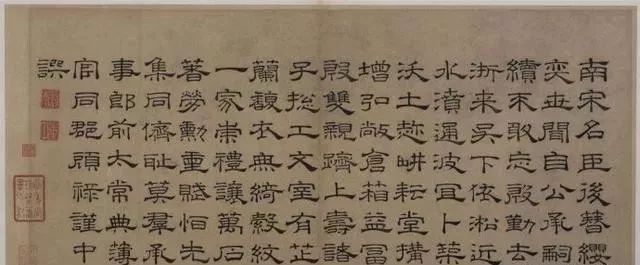 南宋名臣後簪纓
奕世聞自公承嗣
續不敢忘殷勤去
浙来吴下依淞近
水濆運波冝卜築
沃土趁畊耘堂搆
增弘敞倉箱益冨
殷雙親躋上壽諸
子捴工文室有芷
蘭馥衣無綺縠紋
一家崇禮讓萬石
著勞勳重賦恒先
集同儕耻莫羣承
事郎前太常典薄
官同郡顧祿謹中
譔